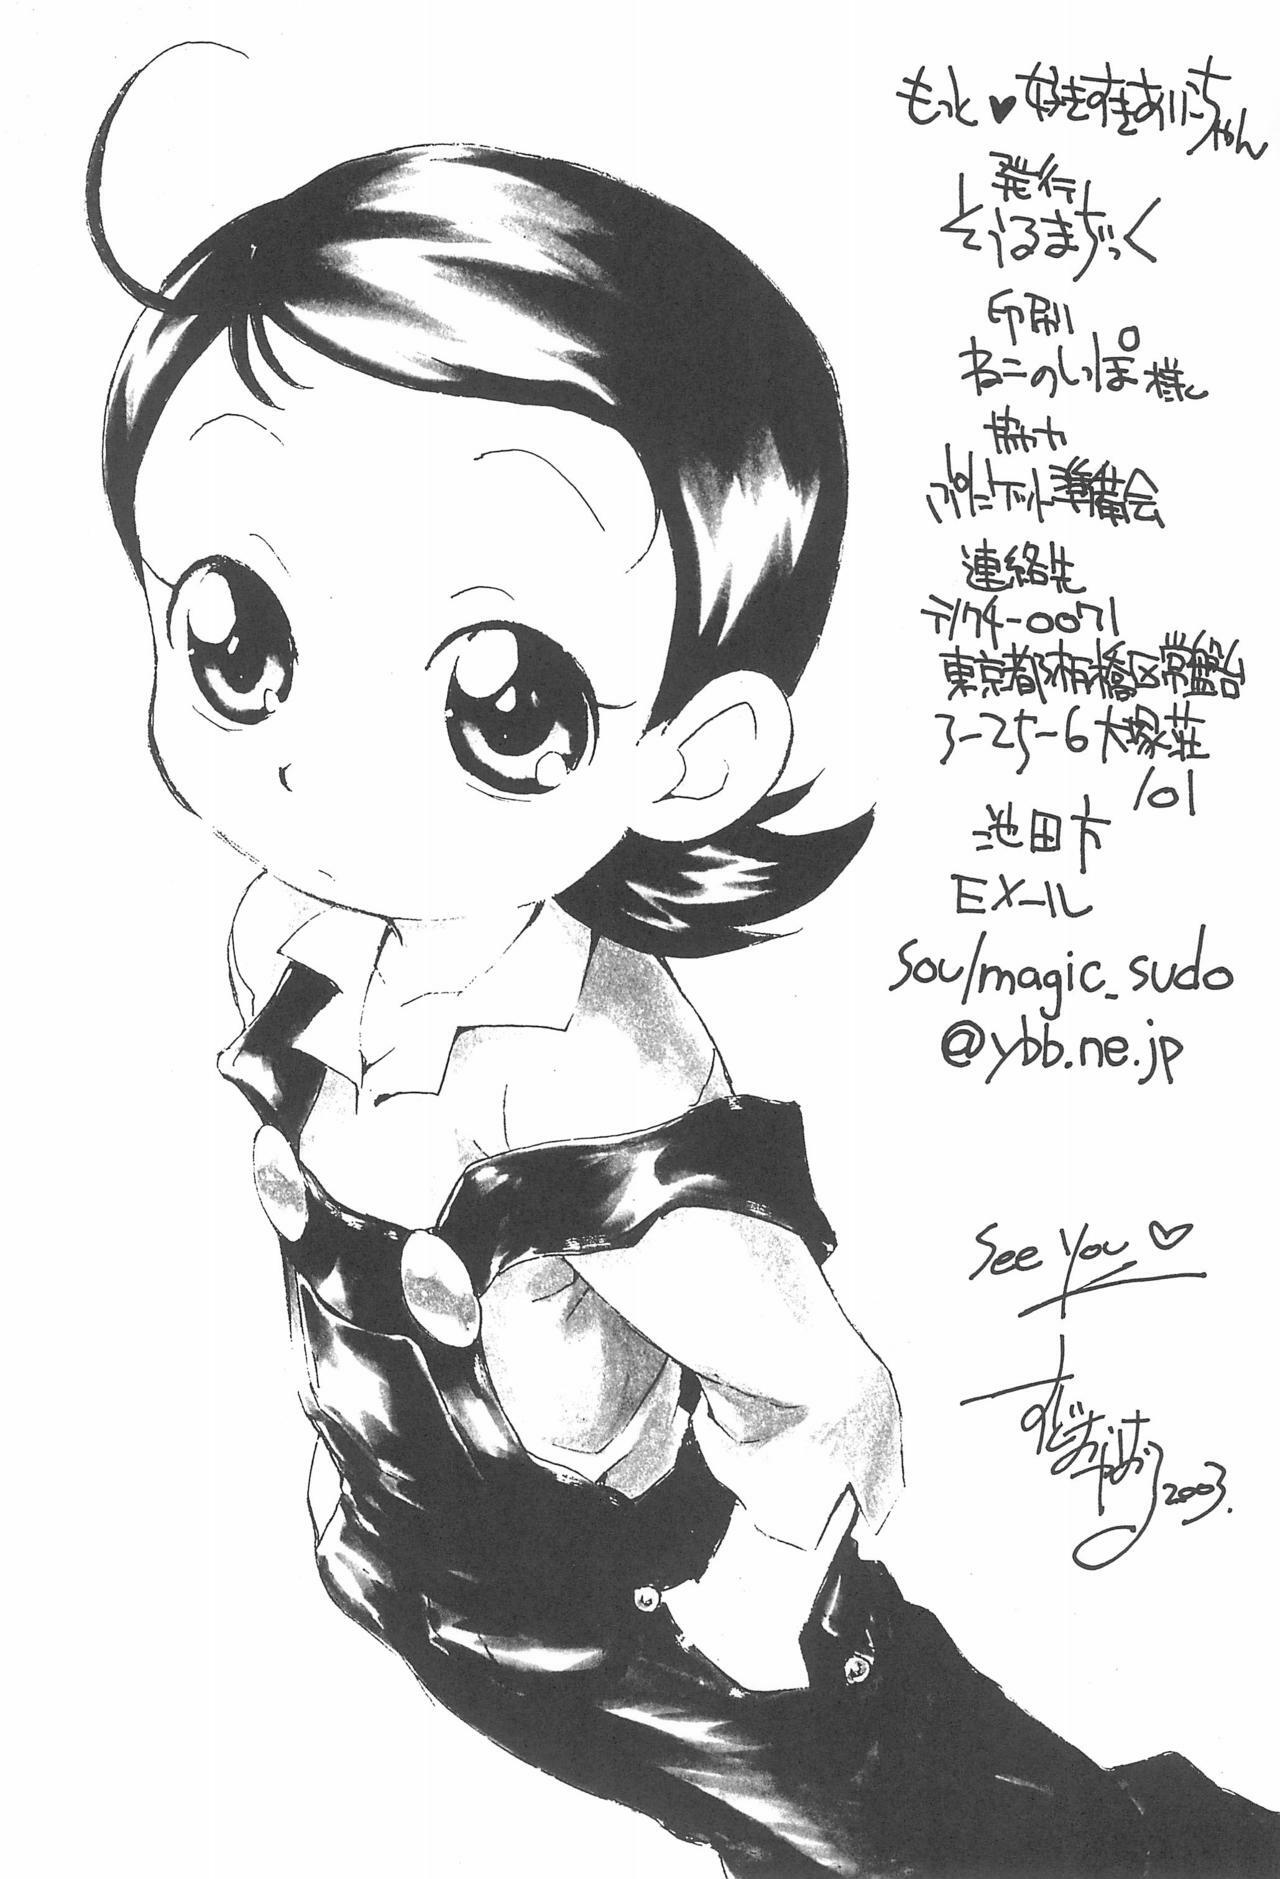 もっと♥好きすきあいこちゃん
発行
そうるまぢっく
印刷
ねこのしっぽ様
協力
ぷにケット準備会
連絡先
〒174-0071
東京都板橋区常盤台
3-25-6 大塚荘
101
池田方
EX-ル
soulmagic_sudo
@ybb.ne.jp
See You ♡
2003.